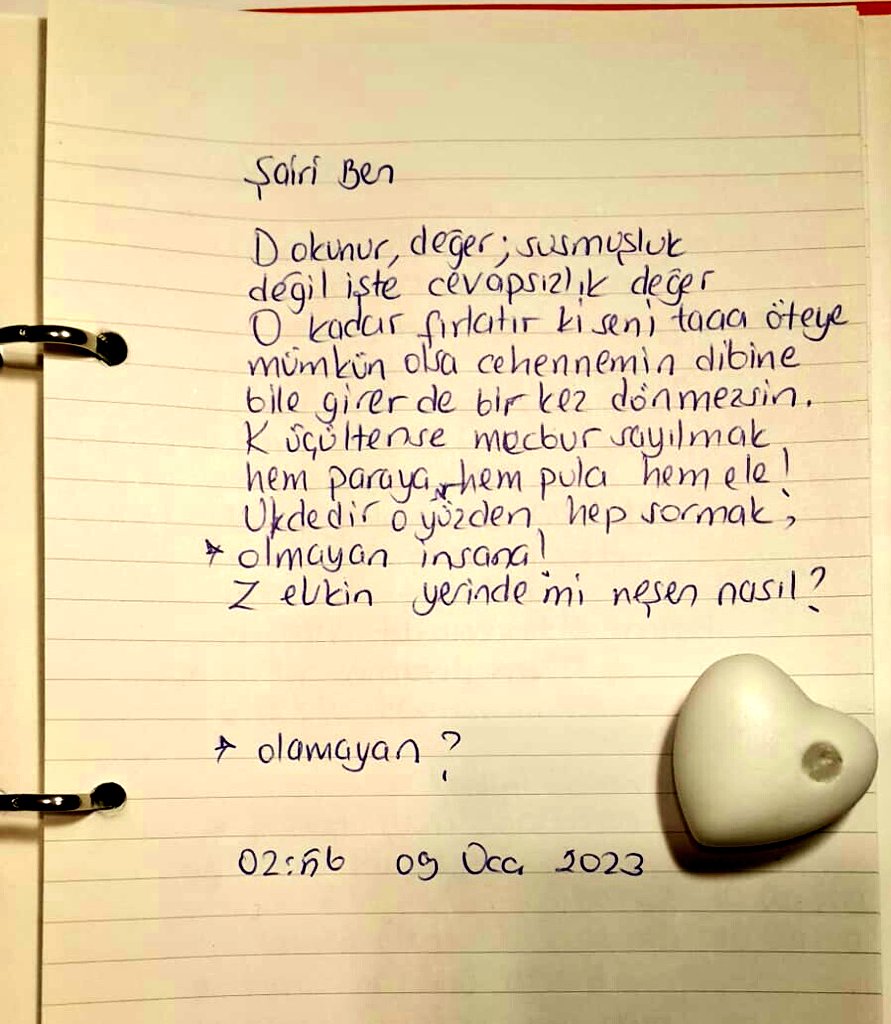 Şairi Ben
Dokunur, değer; susmuşluk
değil işte cevapsızlık değer
O kadar fırlatır ki seni taaa öteye
mümkün olsa cehennemin dibine
bile girer de bir kez dönmezsin.
Küçültense mecbur sayılmak
hem paraya, hem pula hem ele!
Ukdedir o yüzden hep sormak,
* olmayan insana!
Zevkin yerinde mi neşen nasıl?
* olamayan?
09 Oca 2023